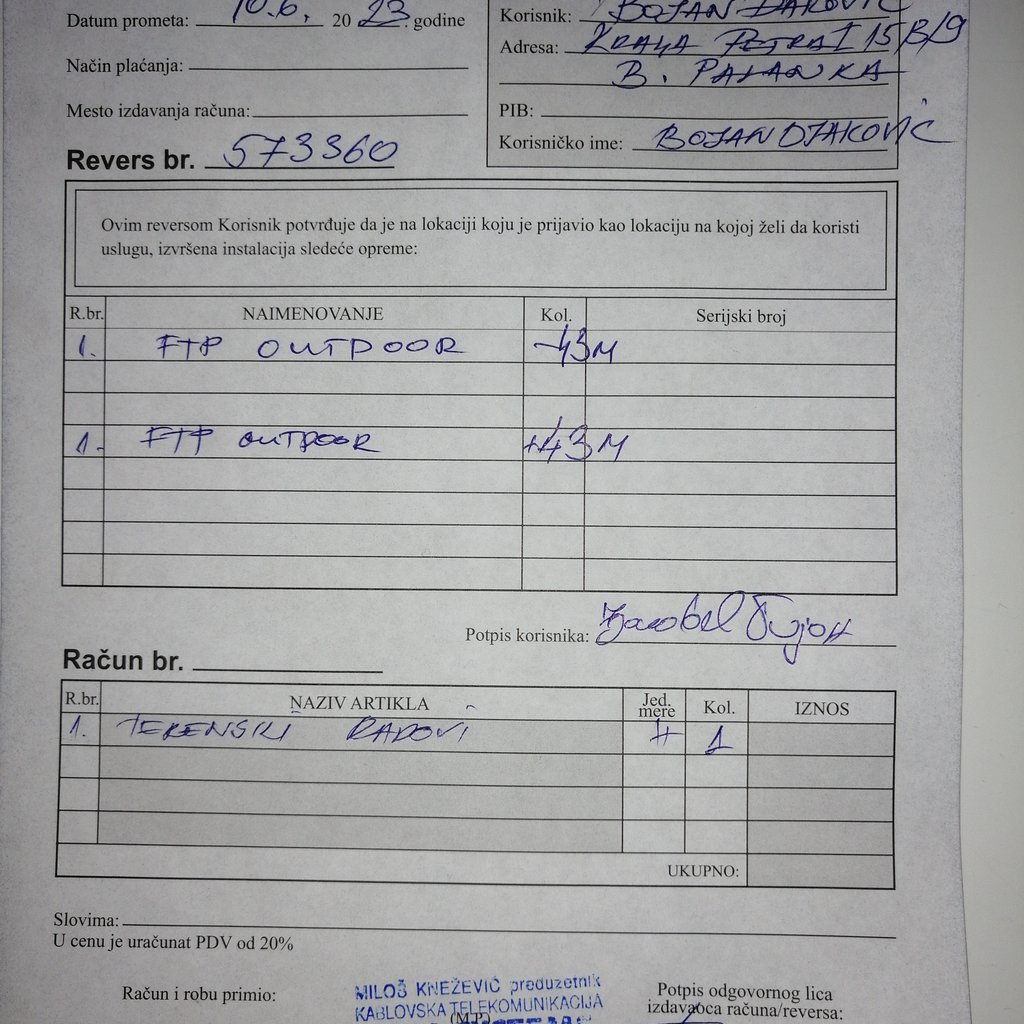 Datum prometa: 10.6. 2023. godine
Način plaćanja:
Mesto izdavanja računa:
Revers br. 573360
Korisnik: BOJAN ĐAKOVIĆ
Adresa: KRALJA PETRA I 15/B/9
B. PALANKA
PIB:
Korisničko ime: BOJANDJAKOVIĆ
Ovim reversom Korisnik potvrđuje da je na lokaciji koju je prijavio kao lokaciju na kojoj želi da koristi
uslugu, izvršena instalacija sledeće opreme:
R.br. NAIMENOVANJE Kol. Serijski broj
1. FTP OUTDOOR -43M
1. FTP OUTDOOR +43M
Potpis korisnika:
Račun br.
R.br. NAZIV ARTIKLA Jed. mere Kol. IZNOS
1. TERENSKI RADOVI H 1
UKUPNO:
Slovima:
U cenu je uračunat PDV od 20%
Račun i robu primio:
MILOŠ KNEŽEVIĆ preduzetnik
KABLOVSKA TELEKOMUNIKACIJA
(M.P.)
Potpis odgovornog lica
izdavaoca računa/reversa: